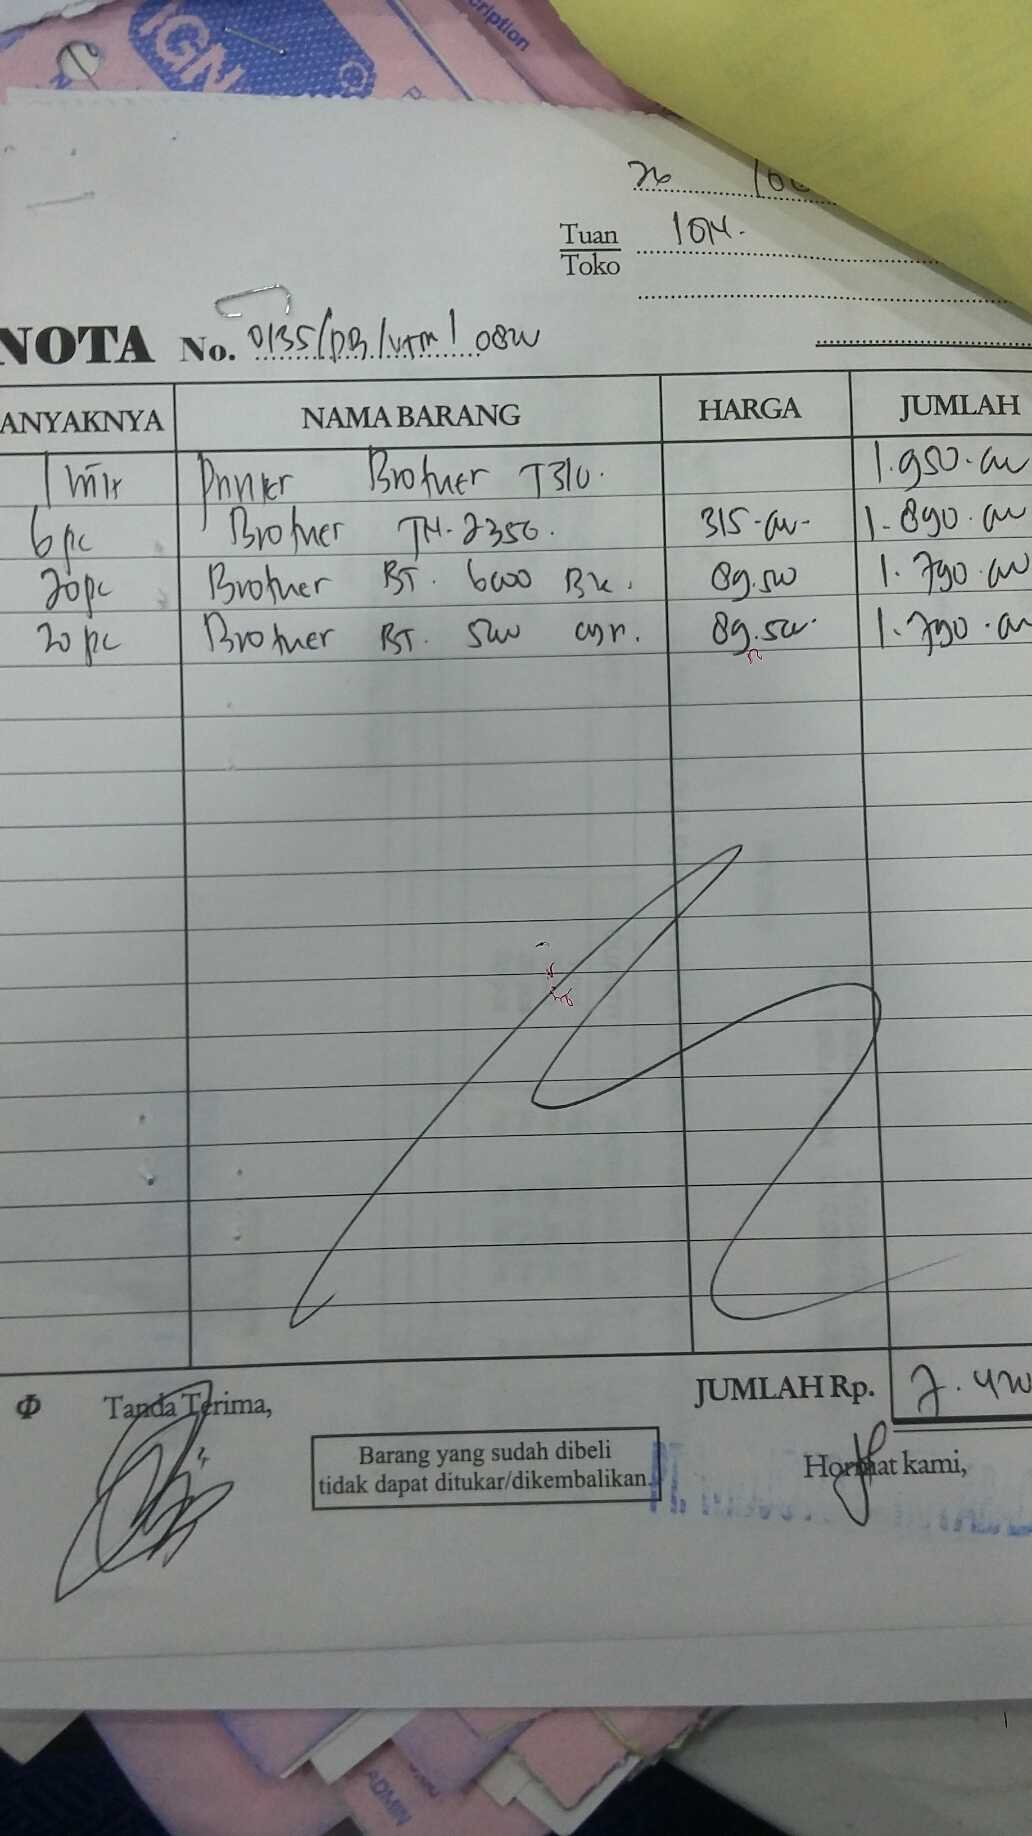 IGN
cription
26
Tuan
Toko
IGN.
NOTA No. 0135/DB/VTM/
ANYAKNYA NAMA BARANG HARGA JUMLAH
1 Printer Brother T310. 1.950.000
6 pc Brother TN-2356. 315.000- 1.890.000
20 pc Brother BT. 6000 Bk. 89.500 1.790.000
20 pc Brother BT. 5000 cyn. 89.500. 1.790.000
Φ Tanda Terima, JUMLAH Rp. 7.420
Barang yang sudah dibeli
tidak dapat ditukar/dikembalikan.
Hormat kami,
ADMIN